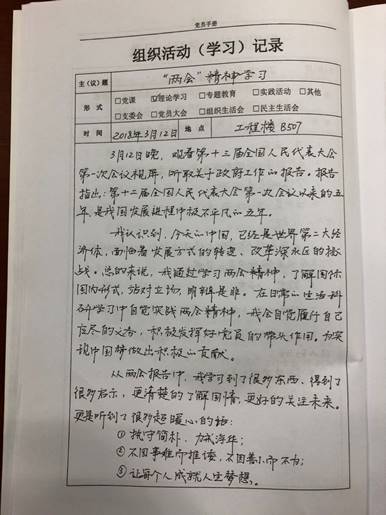 党员手册
组织活动（学习）记录
主（议）题 "两会"精神学习
形式 □党课 ☑理论学习 □专题教育 □实践活动 □其他
□支委会 □党员大会 □组织生活会 □民主生活会
时间 2018年3月12日 地点 工程楼B507
3月12日晚，观看第十三届全国人民代表大会
第一次会议视屏，听取关于政府工作的报告。报告
指出：第十二届全国人民代表大会第一次会议以来的五
年，是我国发展进程中极不平凡的五年。
我认识到，今天的中国，已经是世界第二大经
济体，面临着发展方式的转变、改革深水区的挑
战。总的来说，我通过学习两会精神，了解国际
国内形式，站对立场，明辨是非。在日常的生活科
研学习中自觉实践两会精神，我会自觉履行自己
应尽的义务，积极发挥好党员的带头作用。为实
现中国梦做出积极的贡献。
从两会报告中，我学习到了很多东西、得到了
很多启示，更清楚的了解国情，更好的关注未来。
更是听到了很多超暖心的话：
①执守简朴、力戒浮华；
②不因事难而推诿，不因善小而不为；
③让每个人成就人生梦想。